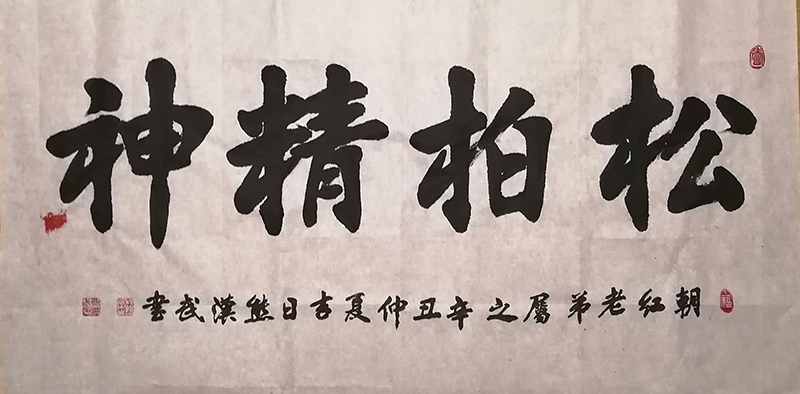 松柏精神
朝红老弟属之辛丑仲夏吉日熊漢武书